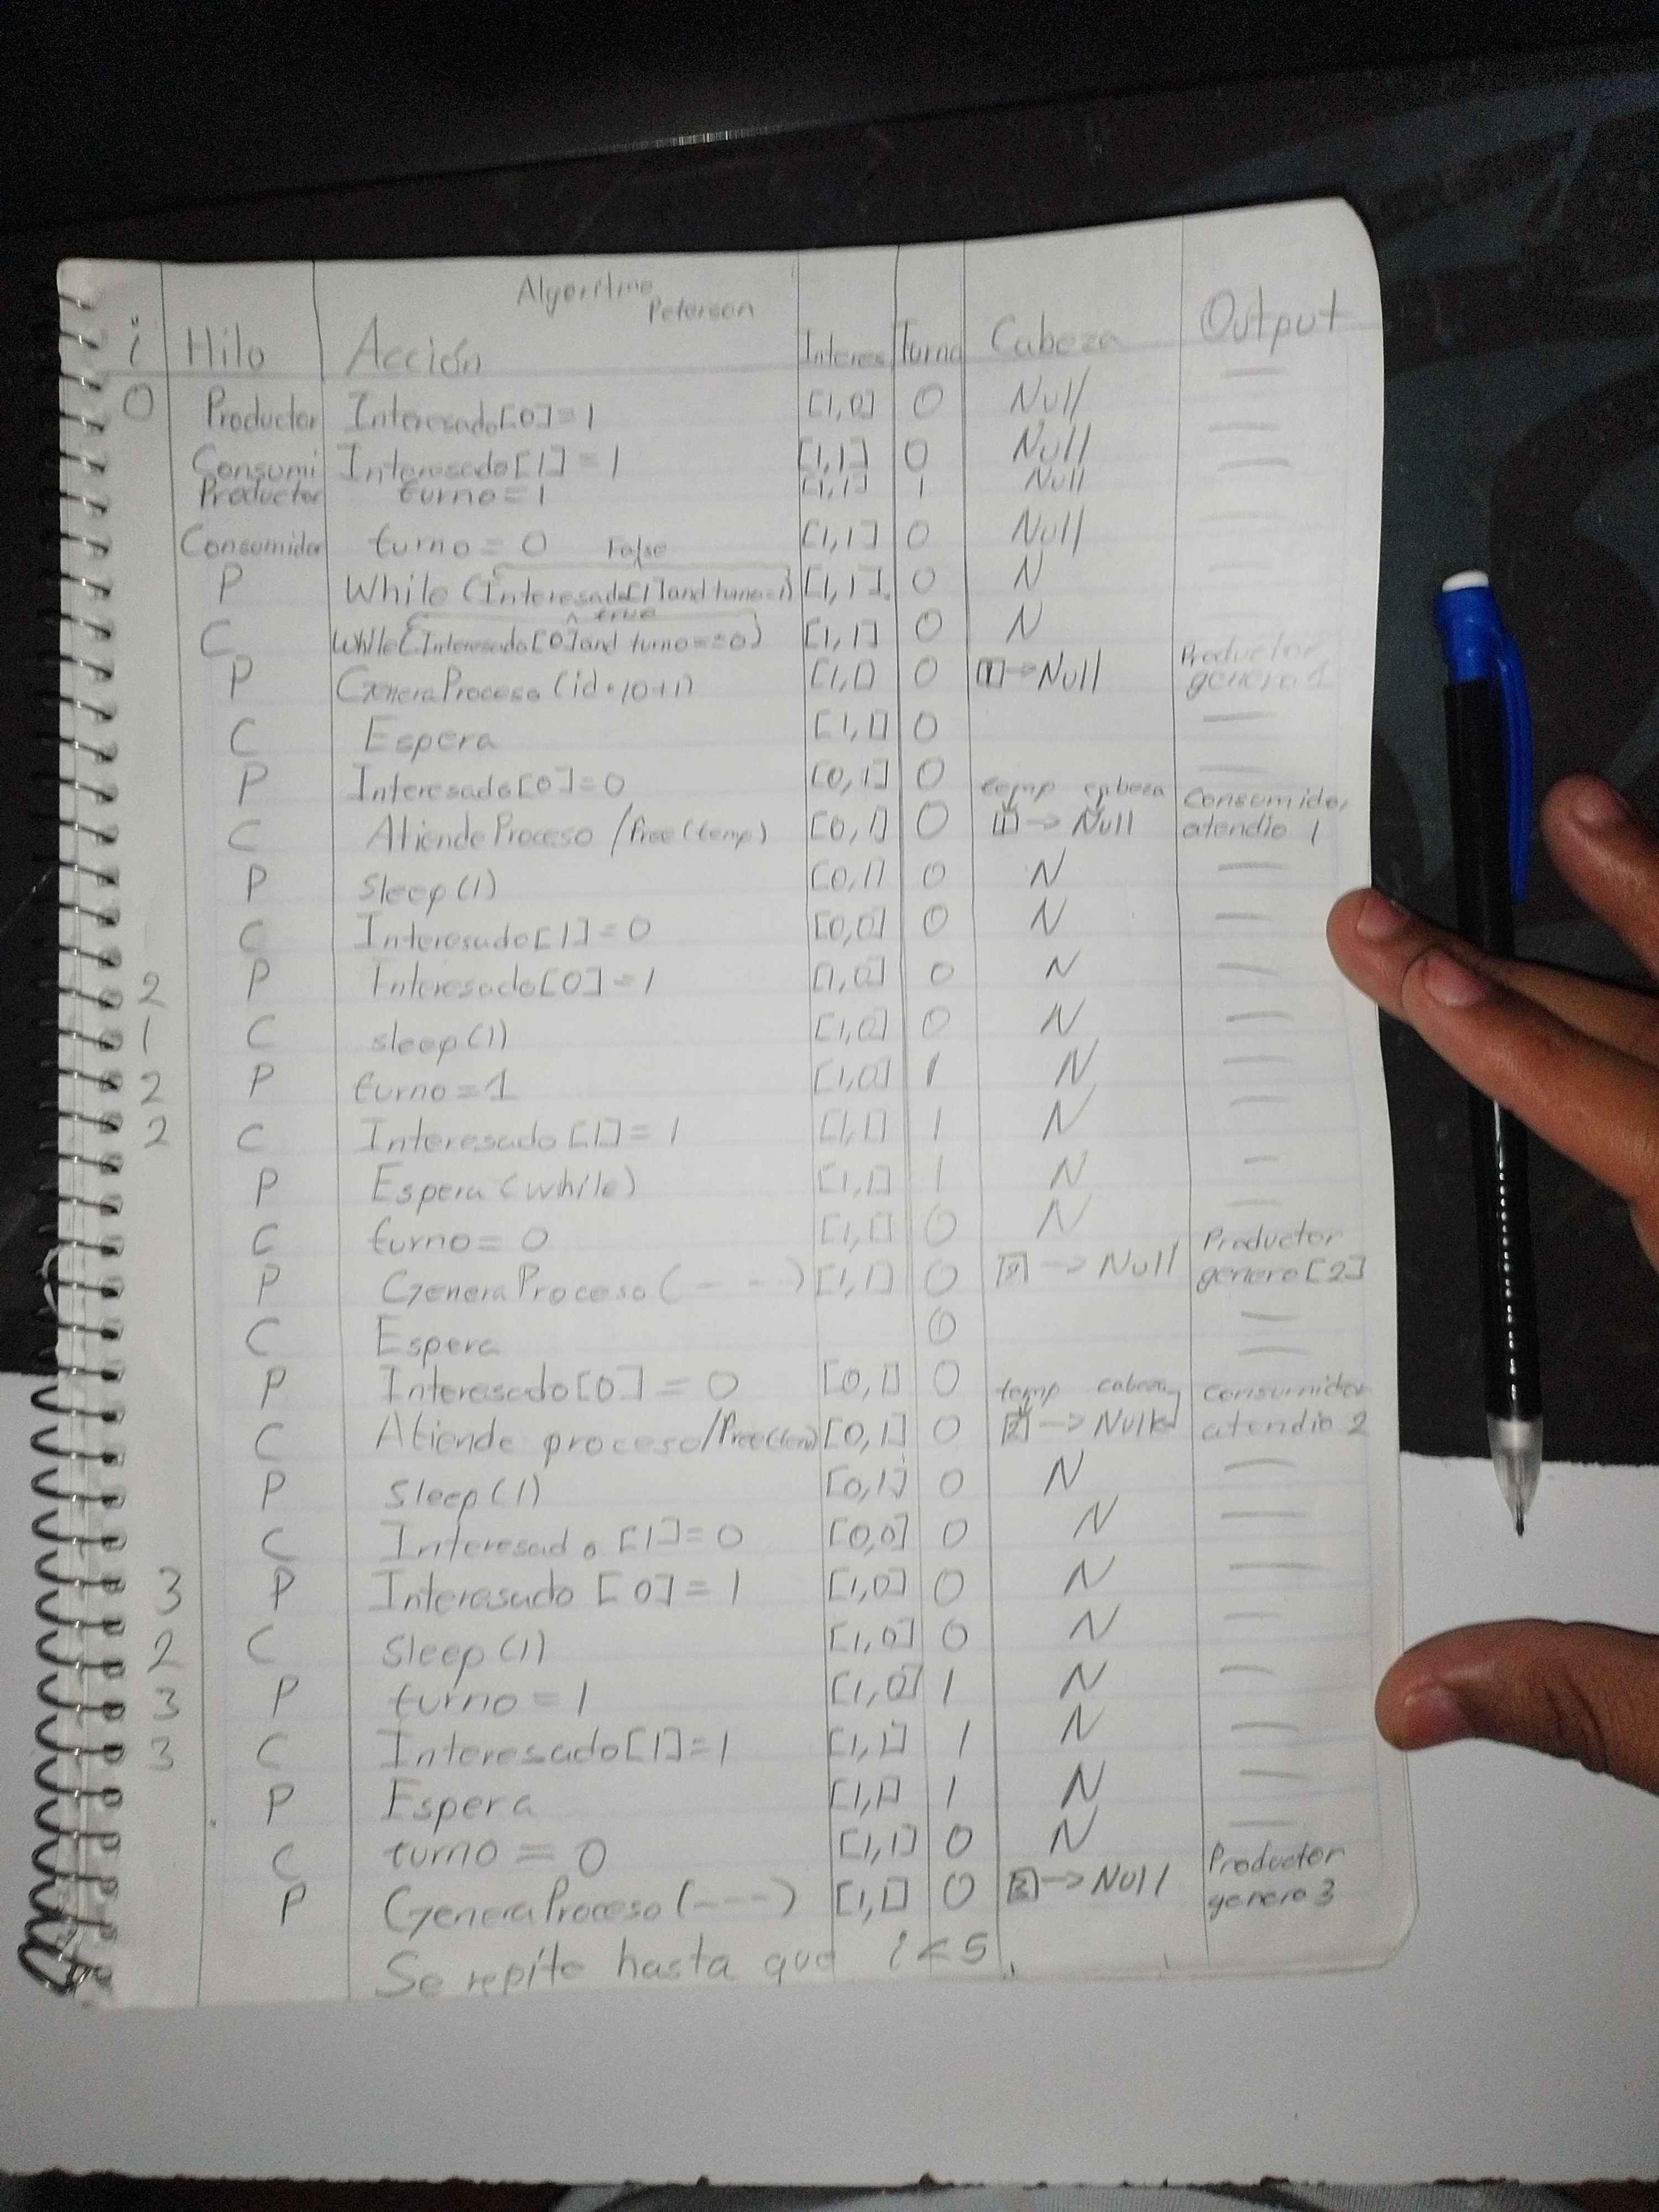 Algoritmo
Peterson
i Hilo Acción Interes Turno Cabeza Output
0 Productor Interesado[0]=1 [1,0] 0 Null —
Consumi Interesado[1]=1 [1,1] 0 Null —
Productor turno=1 [1,1] 1 Null —
Consumidor turno=0 [1,1] 0 Null —
False
P While (Interesado[1] and turno=1) [1,1] 0 N —
true
C While(Interesado[0] and turno==0) [1,1] 0 N
P GeneraProceso(id*10+1) [1,1] 0 [1]→Null Productor genero 1
C Espera [1,1] 0 —
P Interesado[0]=0 [0,1] 0 —
C AtiendeProceso /free(temp) [0,1] 0 temp cabeza [1]→Null Consumidor atendio 1
P sleep(1) [0,1] 0 N —
C Interesado[1]=0 [0,0] 0 N —
2 P Interesado[0]=1 [1,0] 0 N —
1 C sleep(1) [1,0] 0 N —
2 P turno=1 [1,0] 1 N —
2 C Interesado[1]=1 [1,1] 1 N —
P Espera (while) [1,1] 1 N —
C turno=0 [1,1] 0 N —
P GeneraProceso(- - -) [1,1] 0 [2]→Null Productor genero[2]
C Espera 0 —
P Interesado[0]=0 [0,1] 0 —
C Atiende proceso/free(tem) [0,1] 0 temp cabeza [2]→Null Consumidor atendio 2
P Sleep(1) [0,1] 0 N —
C Interesado[1]=0 [0,0] 0 N —
3 P Interesado[0]=1 [1,0] 0 N —
2 C Sleep(1) [1,0] 0 N —
3 P turno=1 [1,0] 1 N —
3 C Interesado[1]=1 [1,1] 1 N —
P Espera [1,1] 1 N —
C turno=0 [1,1] 0 N —
P GeneraProceso(---) [1,1] 0 [3]→Null Productor genero 3
Se repite hasta que i<5.